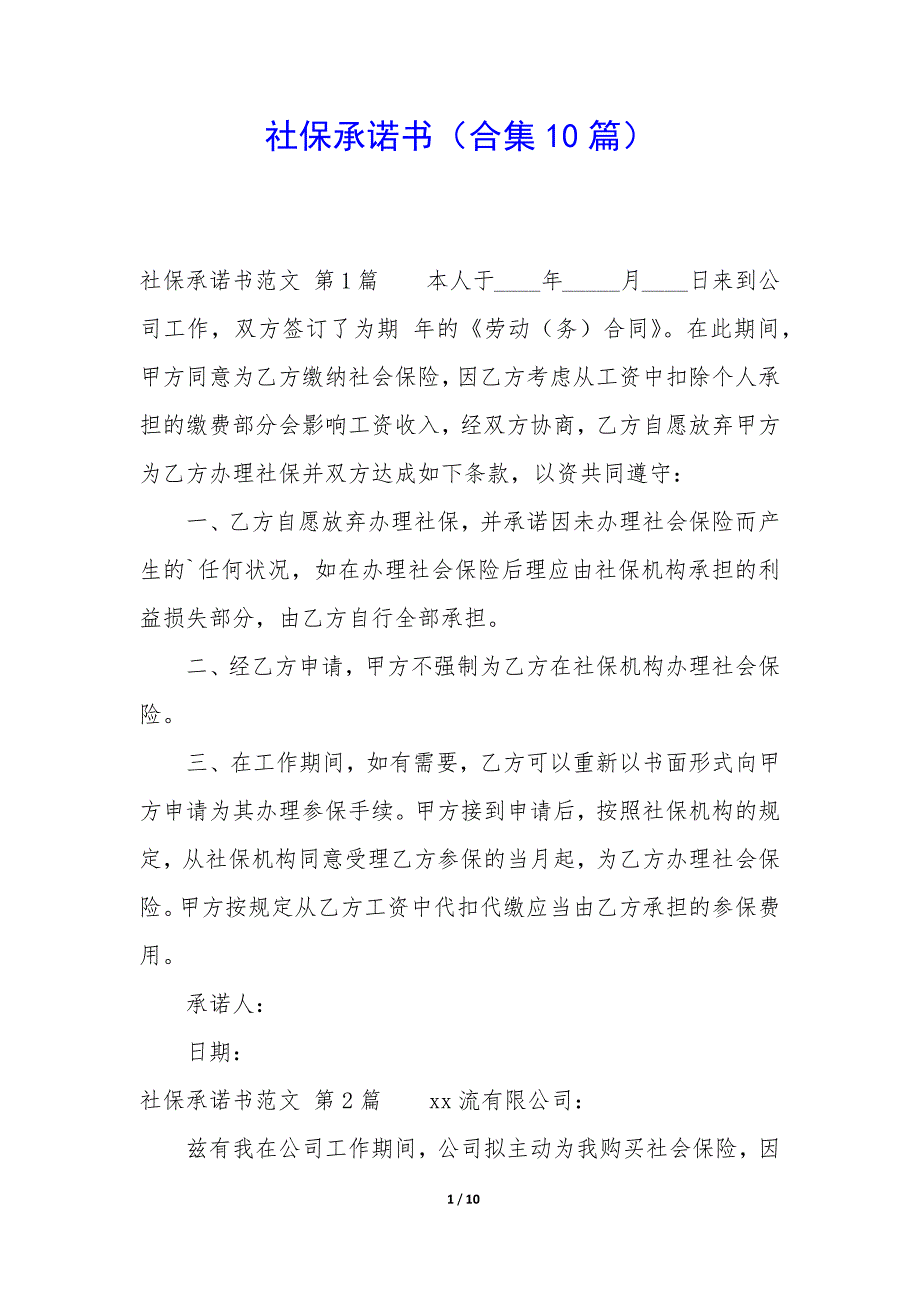 社保承诺书（合集10篇）
社保承诺书范文 第1篇　　本人于____年_____月____日来到公
司工作，双方签订了为期 年的《劳动（务）合同》。在此期间，
甲方同意为乙方缴纳社会保险，因乙方考虑从工资中扣除个人承
担的缴费部分会影响工资收入，经双方协商，乙方自愿放弃甲方
为乙方办理社保并双方达成如下条款，以资共同遵守：
一、乙方自愿放弃办理社保，并承诺因未办理社会保险而产
生的`任何状况，如在办理社会保险后理应由社保机构承担的利
益损失部分，由乙方自行全部承担。
二、经乙方申请，甲方不强制为乙方在社保机构办理社会保
险。
三、在工作期间，如有需要，乙方可以重新以书面形式向甲
方申请为其办理参保手续。甲方接到申请后，按照社保机构的规
定，从社保机构同意受理乙方参保的当月起，为乙方办理社会保
险。甲方按规定从乙方工资中代扣代缴应当由乙方承担的参保费
用。
承诺人：
日期：
社保承诺书范文 第2篇　　xx流有限公司：
兹有我在公司工作期间，公司拟主动为我购买社会保险，因
1 / 10